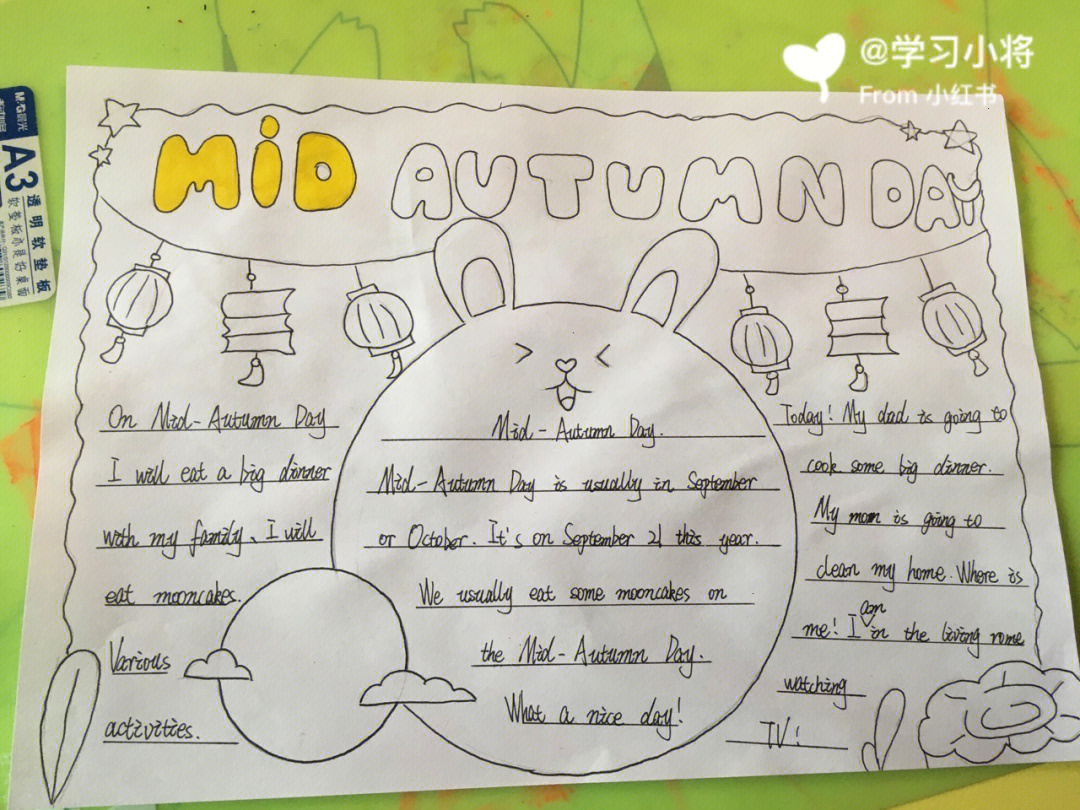 @学习小将
From 小红书
M&G晨光
A3
透明软垫板
MiD AUTUMN DAY
On Mid-Autumn Day
I will eat a big dinner
with my family、I will
eat mooncakes.
Various
activities.
Mid-Autumn Day.
Mid-Autumn Day is usually in September
or October. It's on September 21 this year.
We usually eat some mooncakes on
the Mid-Autumn Day.
What a nice day!
Today! My dad is going to
cook some big dinner.
My mom is going to
clean my home. Where is
me! I am in the living rome
watching
TV!